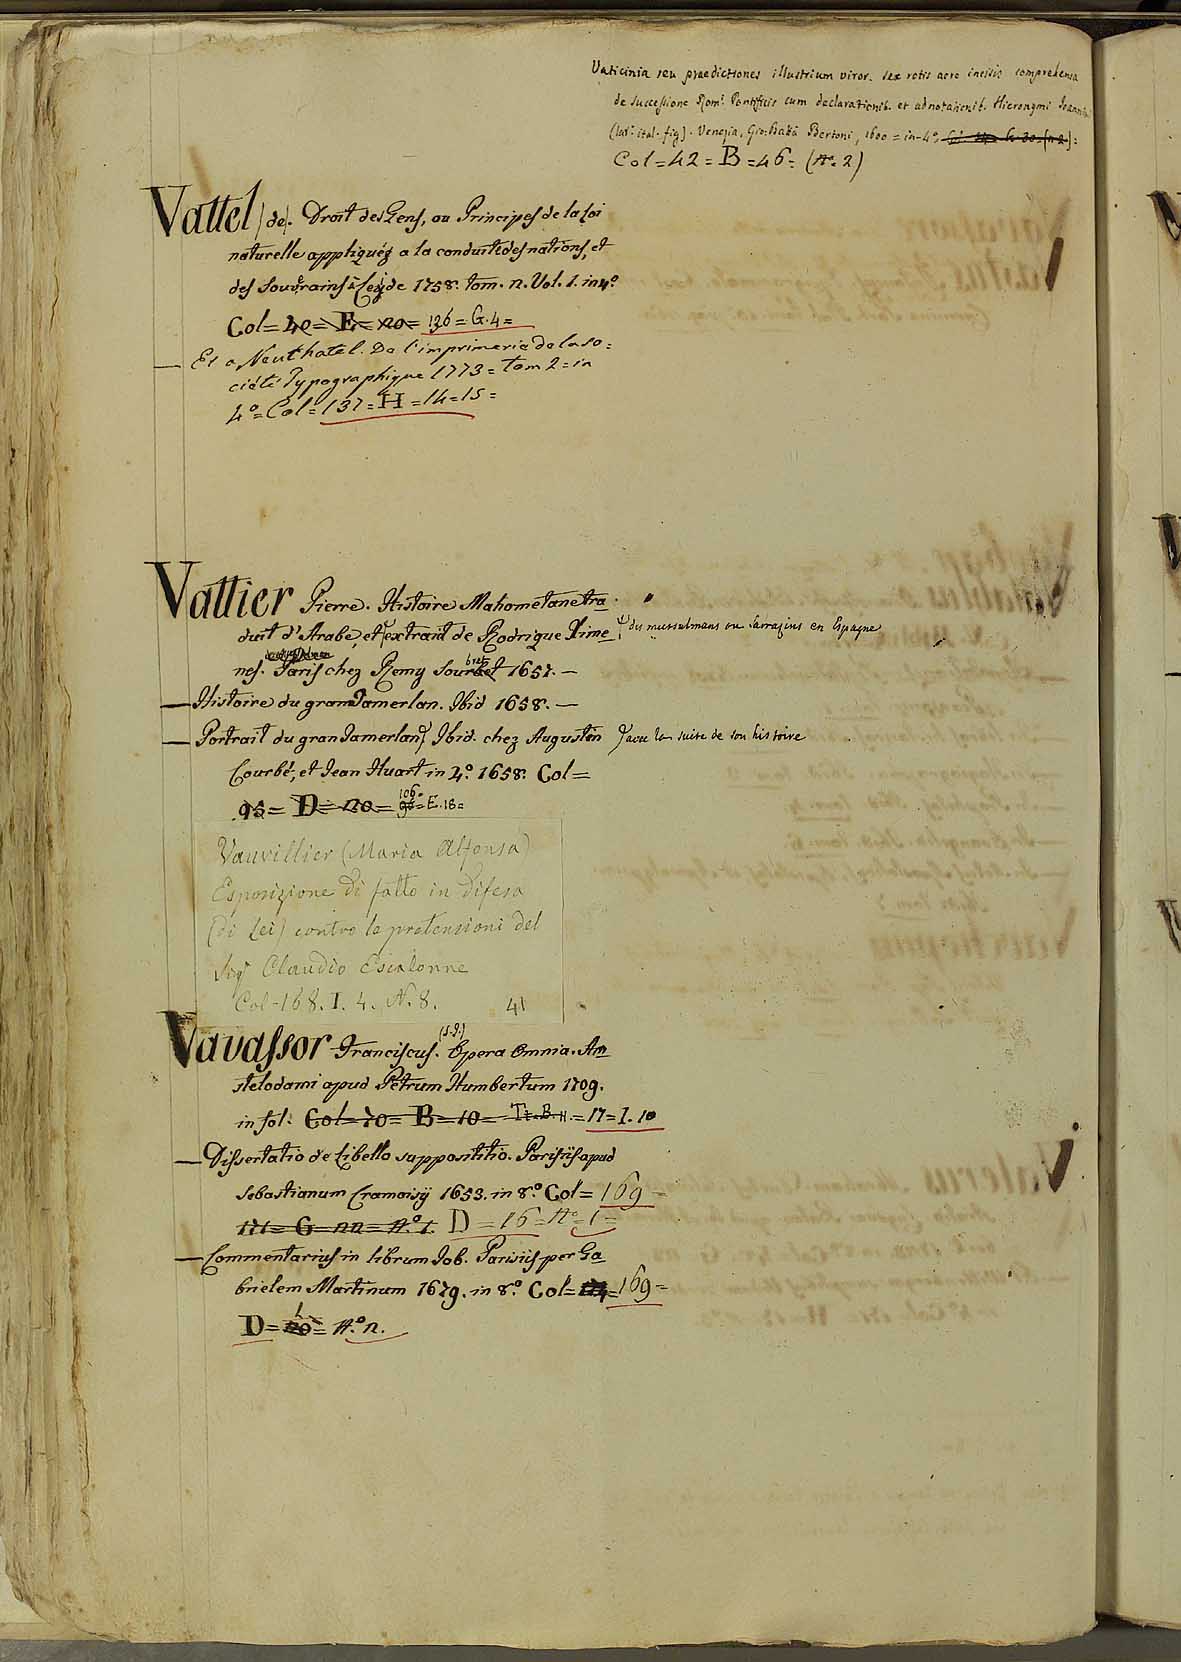 Vaticinia seu praedictiones illustrium viror. sex rotis aere incisis comprehensa
de successione Rom.i Pontificis cum declarationib. et adnotationib. Hieronymi
(lat. ital. fig). Venezia, Gio: Batta Bertoni, 1600 = in-4.°
Col = 42 = B = 46 = (N.° 2)
Vattel (de). Droit des Gens, ou Principes de la Loi
naturelle appliquéz a la conduite des nations, et
des Souverains à Leyde 1758. tom. n. Vol. 1. in 4.°
Col = 40 = E = no = 136 = G. 4 =
— Et a Neuchatel. De l'imprimerie de la so=
cieté Typographique 1773 = tom 2 = in
4.° = Col = 137 = H = 14 = 15 =
Vattier Pierre. Histoire Mahometane tra
duit d'Arabe, et extrait de Rodrigue Xime
des mussulmans ou Sarrazins en Espagne
nes. Paris chez Remy Sourbet 1657. —
— Histoire du gran Tamerlan. Ibid 1658. —
— Portrait du gran Tamerlan Ibid. chez Augustin
avec la suite de son histoire
Courbé, et Jean Huart in 4.° 1658. Col =
95 = D = no = 106 = E. 18 =
Vauvillier (Maria Alfonsa)
Esposizione di fatto in difesa
(di Lei) contro le pretensioni del
Sigr Claudio Escalonne
Col - 168. I. 4. N. 8. 41
Vavassor Franciscus. (S.J.) Opera Omnia. Am
stelodami apud Petrum Humbertum 1709.
in fol: Col = 70 = B = 10 = T. B. H. = 17 = I. 10
— Dissertatio de Libello supposititio. Parisiis apud
Sebastianum Cramoisÿ 1653. in 8.° Col = 169 =
171 = G nn = N.° 1. D = 16 = N.° = 1 =
— Commentarius in librum Job. Parisiis per Ga
brielem Martinum 1679. in 8.° Col = 169 =
D = N.° n.